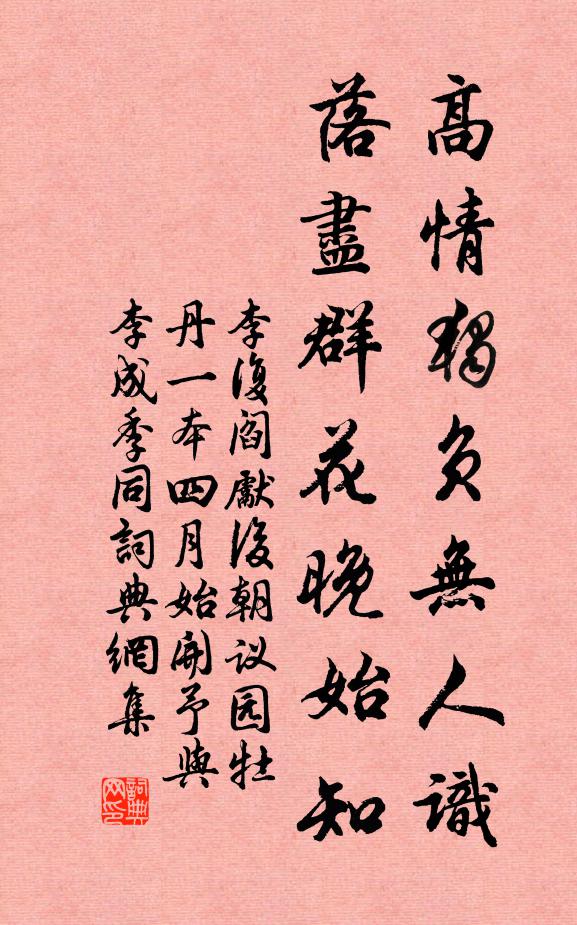 高情獨負無人識
落盡群花晚始知
李復閻獻後朝议园牡
丹一本四月始開予與
李成季同詞典網集
詞典网印